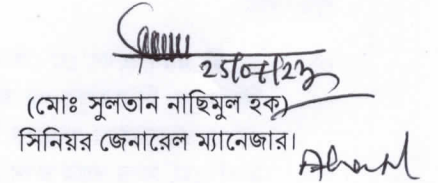 25/07/23
(মোঃ সুলতান নাছিমুল হক)
সিনিয়র জেনারেল ম্যানেজার।